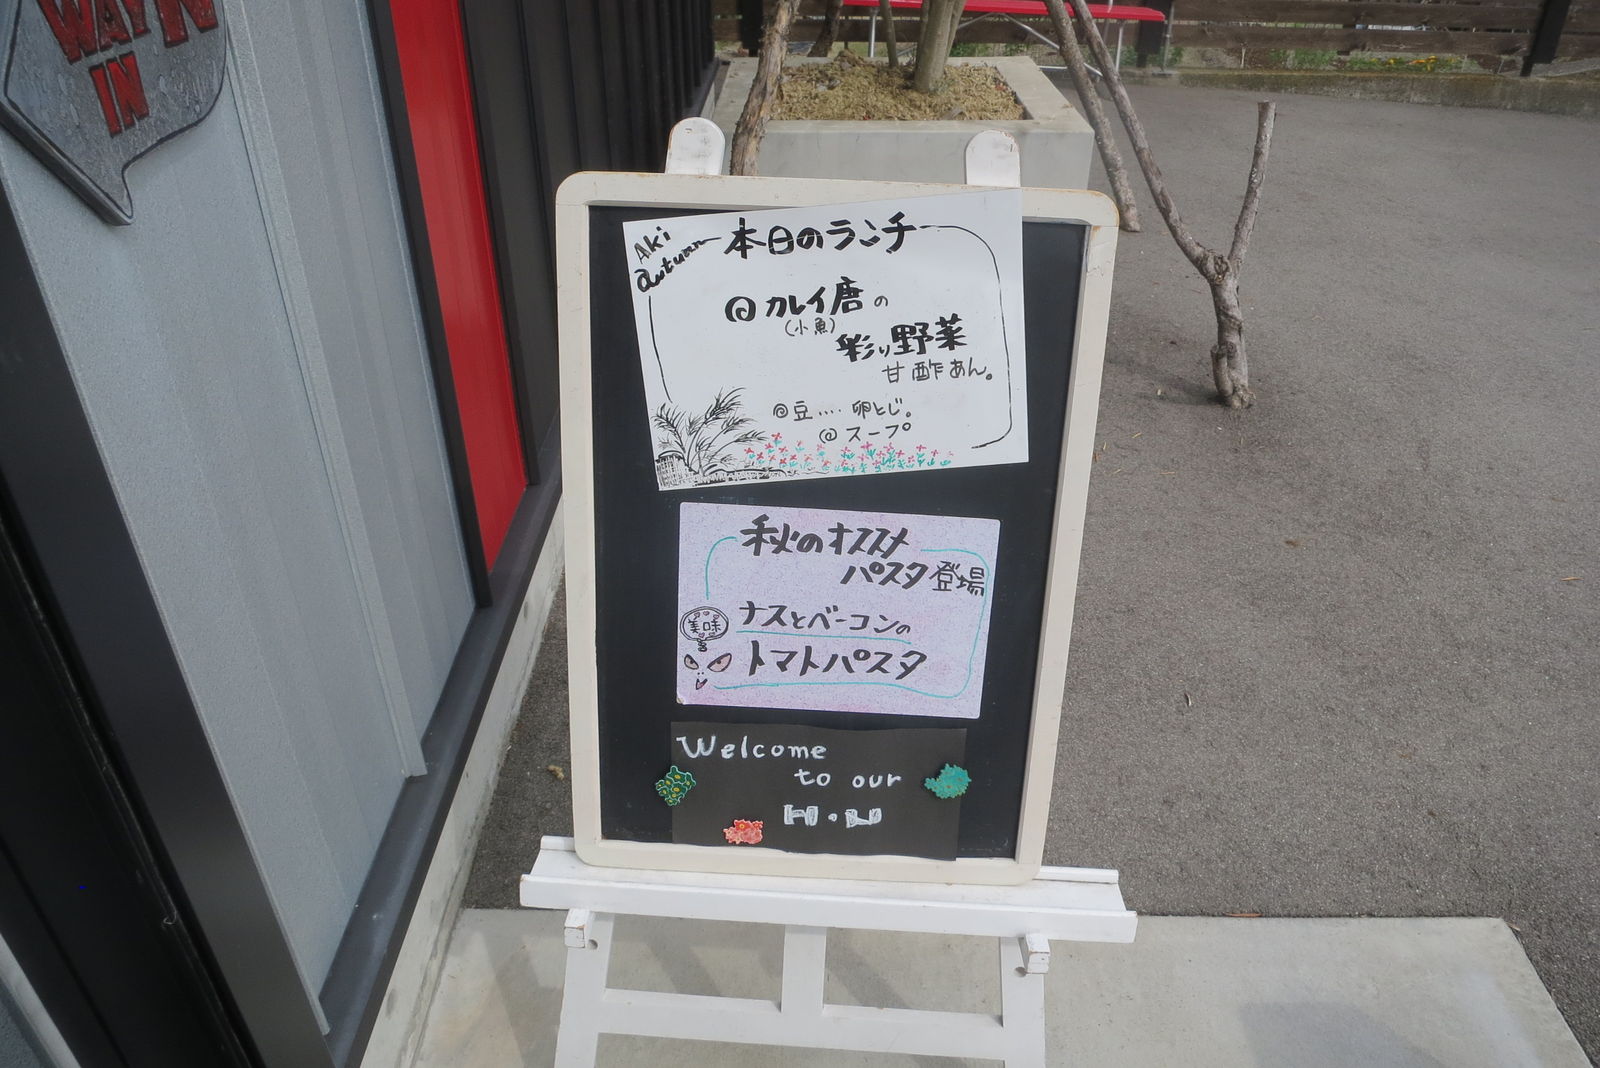 WAY N
IN
Aki
autumn
本日のランチ
@ カレイ唐の
(小魚)
彩り野菜
甘酢あん。
@豆‥‥卵とじ。
@スープ
秋のオススメ
パスタ登場
美味
ナスとベーコンの
トマトパスタ
Welcome
to our
H・W